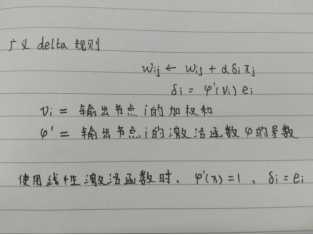 广义 delta 规则
wij ← wij + αδixj
δi = φ'(vi) ei
vi = 输出节点 i 的加权和
φ' = 输出节点 i 的激活函数 φ 的导数
使用线性激活函数时, φ'(x)=1, δi = ei